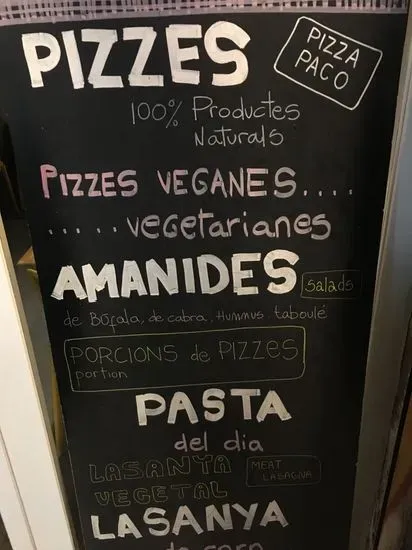 PIZZES
PIZZA
PACO
100% Productes
Naturals
PIZZES VEGANES....
.....vegetarianes
AMANIDES
salads
de Búfala, de cabra, Hummus, taboulé
PORCIONS de PIZZES
portion
PASTA
del dia
LASANYA
VEGETAL
MEAT
LASAGNA
LASANYA
de carn